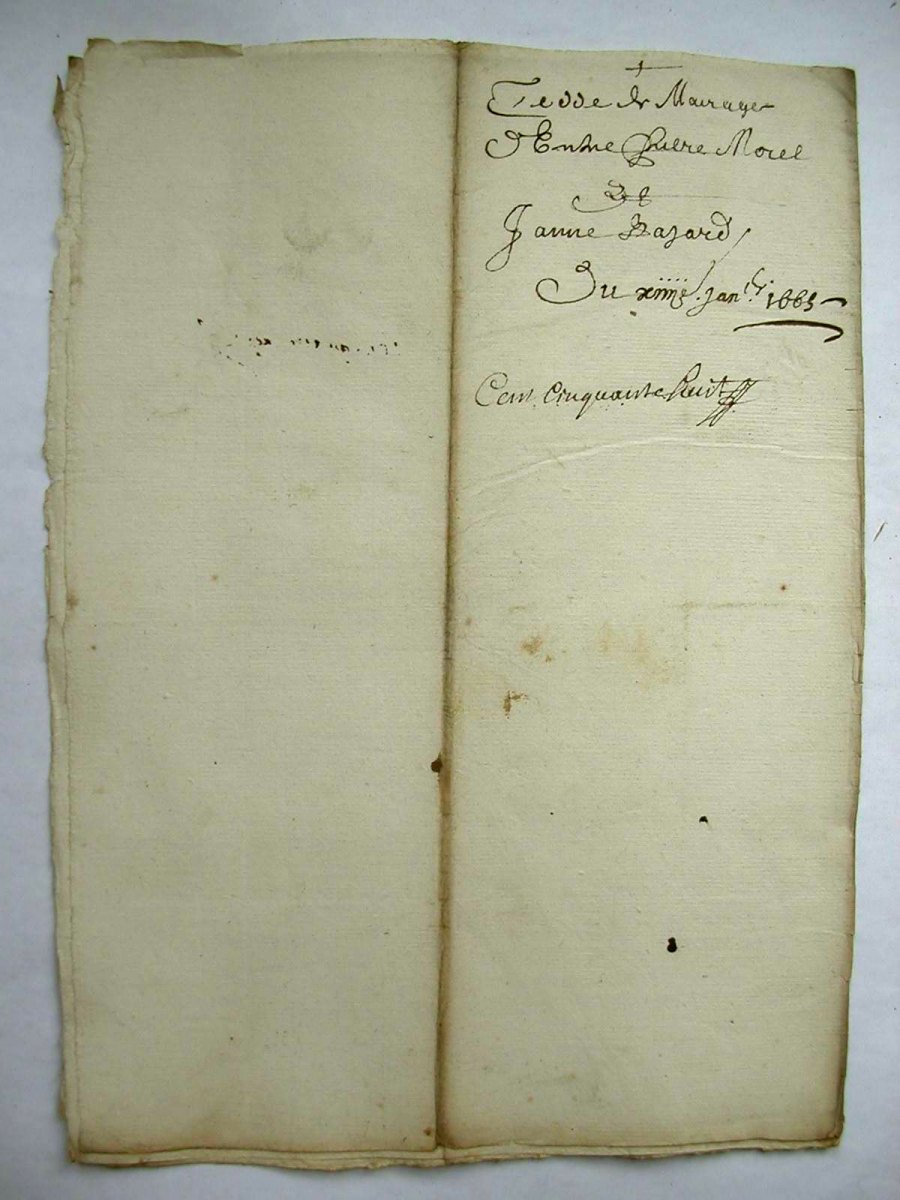 de Mariage
D'Entre Pierre Morel
Et
Janne Bazard
Du xiiiie Janer 1665
Cent Cinquante huit